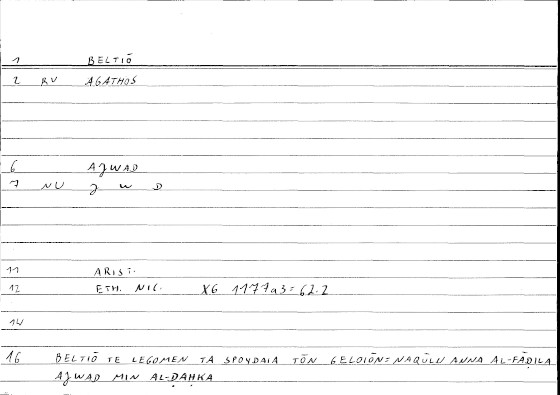 1 BELTIŌ
2 RV AGATHOS
6 AJWAD
7 NU J W D
11 ARIST.
12 ETH. NIC. X6 1177a3=62.2
14
16 BELTIŌ TE LEGOMEN TA SPOYDAIA TŌN GELOIŌN=NAQŪLU ANNA AL-FĀḌILA
AJWAD MIN AL-ḌAḤKA